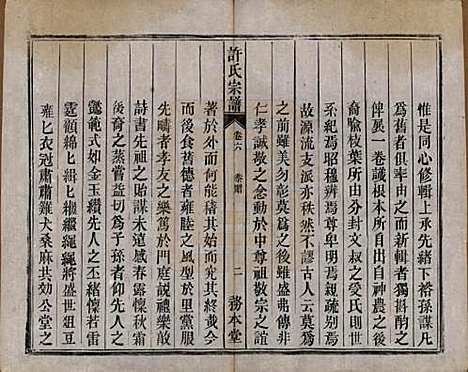 惟是同心修輯上承先緒下裕孫謀凡
為舊者俱率由之而新輯者獨斟酌之
俾異一卷識根本所自出自神農之
裔喻枝葉所由分封文叔之受氏則世
系紀焉昭穆辨焉尊卑明焉親疏別焉
故源流支派亦秩然不謬古人云莫為
之前雖美勿彰莫為之後雖盛弗傳非
仁孝誠敬之念動於中尊祖敬宗之誼
許氏宗譜
卷六
卷册
二
務本堂
何能積其終黄今
而後食舊德者雍睦之風型於里黨服
先疇者孝友之樂篤於門庭觀禮樂敵
詩書先祖之貽謀未遠感春露懷秋霜
後裔之蒸嘗益切為子孫者仰先人之
懿範式如金玉纘先人之丕基懷若雷
霆嶺綿緝緝繼繩繩將盛世俎豆
雍衣冠肅肅雞犬桑麻共効公堂之